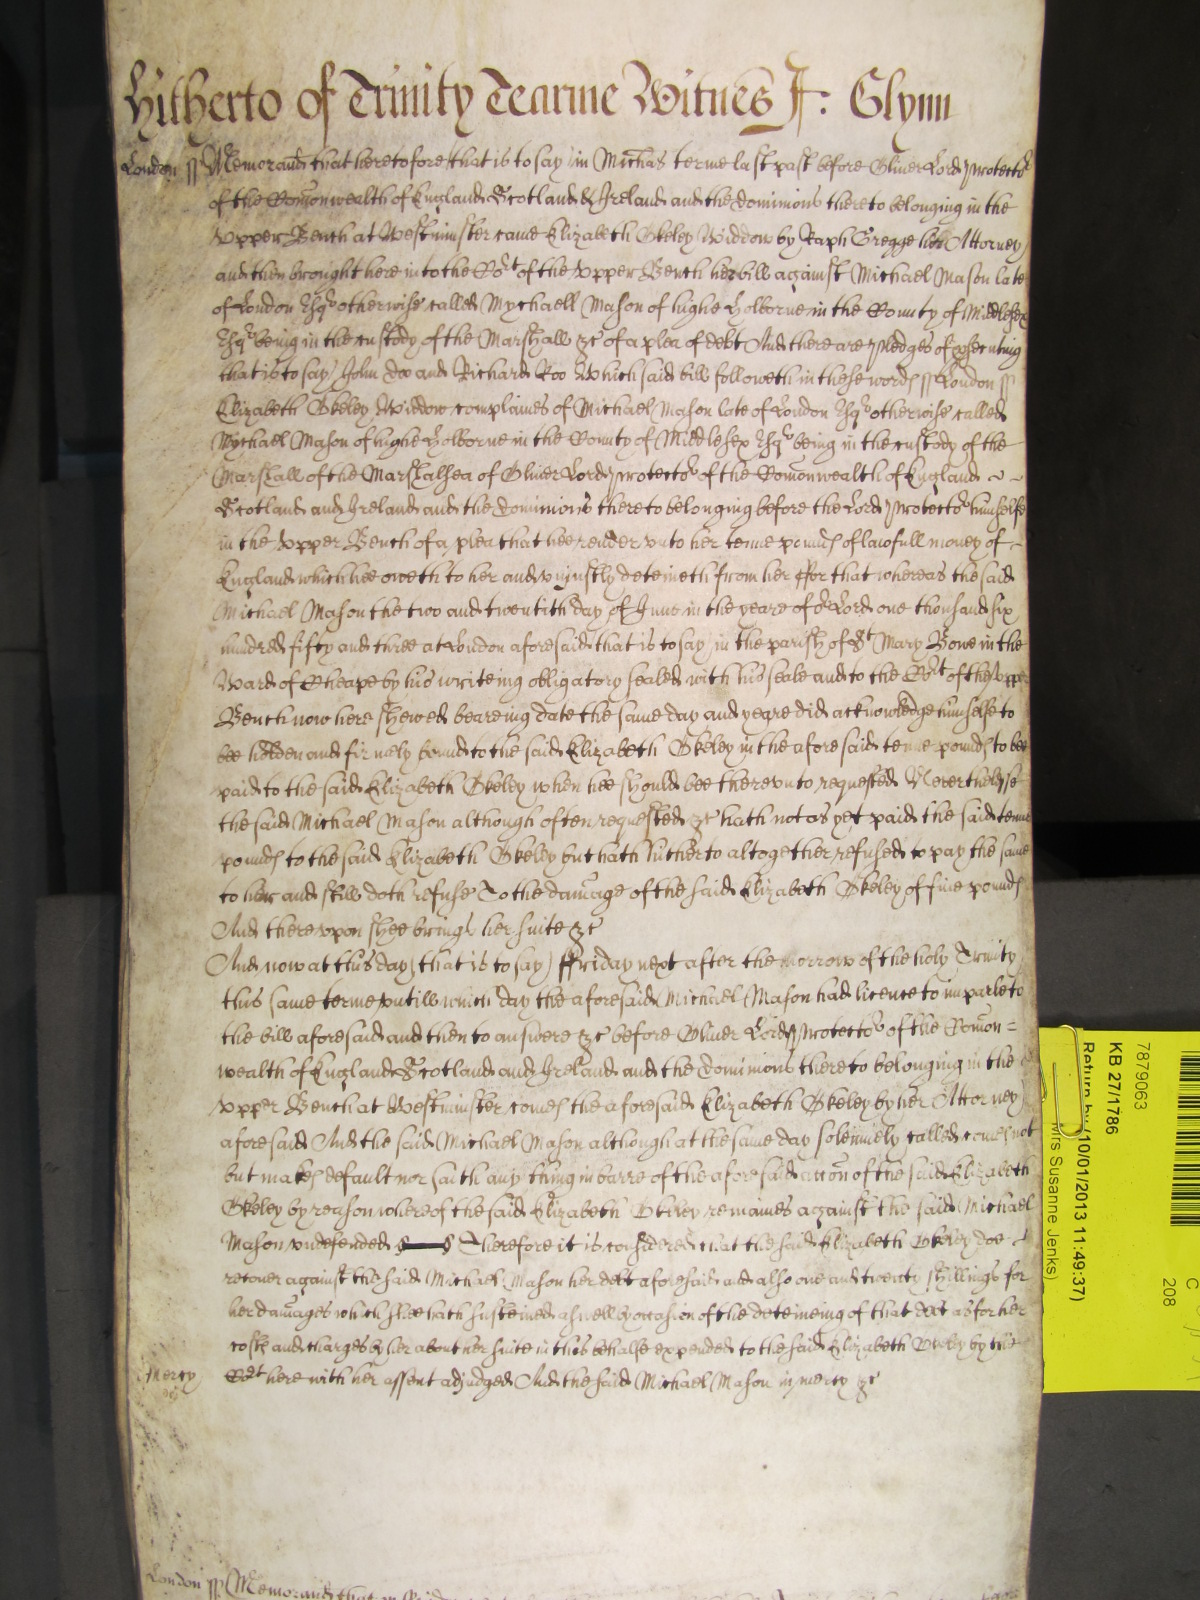 Hitherto of Trinity Tearme Witnes J: Glynn
London ss Memorand that heretofore that is to say in Michas terme last past before Oliver Lord Protector
of the Comonwealth of England Scotland & Ireland and the dominions thereto belonging in the
Upper Bench at Westminster came Elizabeth Okeley Widdow by Raph Gregge her Attorney
and then brought here into the Cort of the Upper Bench her bill against Michael Mason late
of London Esqr otherwise called Mychaell Mason of highe Holborne in the County of Middlesex
Esqr being in the custody of the Marshall &c of a plea of debt And there are pledges of prosecuting
that is to say John Doo and Richard Roo Which said bill followeth in these words ss London ss
Elizabeth Okeley Widdow complaines of Michael Mason late of London Esqr otherwise called
Mychael Mason of highe Holborne in the County of Middlesex Esqr being in the custody of the
Marshall of the Marshalsea of Oliver Lord Protector of the Comonwealth of England
Scotland and Ireland and the dominions thereto belonging before the Lord Protector himselfe
in the Upper Bench of a plea that hee render unto her tenne pounds of lawfull money of
England which hee oweth to her and uniustly deteineth from her ffor that whereas the said
Michael Mason the two and twentith day of June in the yeare of or Lord one thousand six
hundred fifty and three at London aforesaid that is to say in the parish of St Mary Bowe in the
Ward of Cheape by his writeing obligatory sealed with his seale and to the Cort of the Upper
Bench now here shewed beareing date the same day and yeare did acknowledge himselfe to
bee holden and firmely bound to the said Elizabeth Okeley in the aforesaid tenne pounds to bee
paid to the said Elizabeth Okeley when hee should bee thereunto requested Neverthelesse
the said Michael Mason although often requested &c hath not as yet paid the said tenne
pounds to the said Elizabeth Okeley but hath hitherto altogether refused to pay the same
to her and still doth refuse To the damage of the said Elizabeth Okeley of five pounds
And thereupon shee brings her suite &c
And now at this day that is to say ffriday next after the morrow of the holy Trinity
this same terme untill which day the aforesaid Michael Mason had licence to imparle to
the bill aforesaid and then to answere &c before Oliver Lord Protector of the Comon=
wealth of England Scotland and Ireland and the dominions thereto belonging in the
Upper Bench at Westminster comes the aforesaid Elizabeth Okeley by her Attorney
aforesaid And the said Michael Mason although at the same day solemnely called comes not
but makes default nor saith any thing in barre of the aforesaid accon of the said Elizabeth
Okeley by reason whereof the said Elizabeth Okeley remaines against the said Michael
Mason undefended Therefore it is considered that the said Elizabeth Okeley doe
recover against the said Michael Mason her debt aforesaid and also one and twenty shillings for
her damages which shee hath susteined aswell by occasion of the deteineing of that debt as for her
costs and charges by her about her suite in this behalfe expended to the said Elizabeth Okeley by the
Mercy Cort here with her assent adjudged And the said Michael Mason in mercy &c
London ss Memorand that on
7879063
KB 27/1786
Return by (10/01/2013 11:49:37)
Mrs Susanne Jenks)
C
208